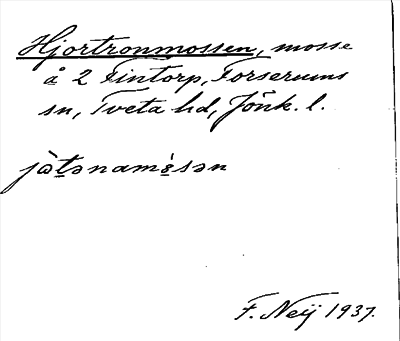 Hjortronmossen, mosse
å 2 Fintorp, Forserums
sn, Tveta hd, Jönk. l.
jòt̠ənamè̠sən
F. Neij 1937.